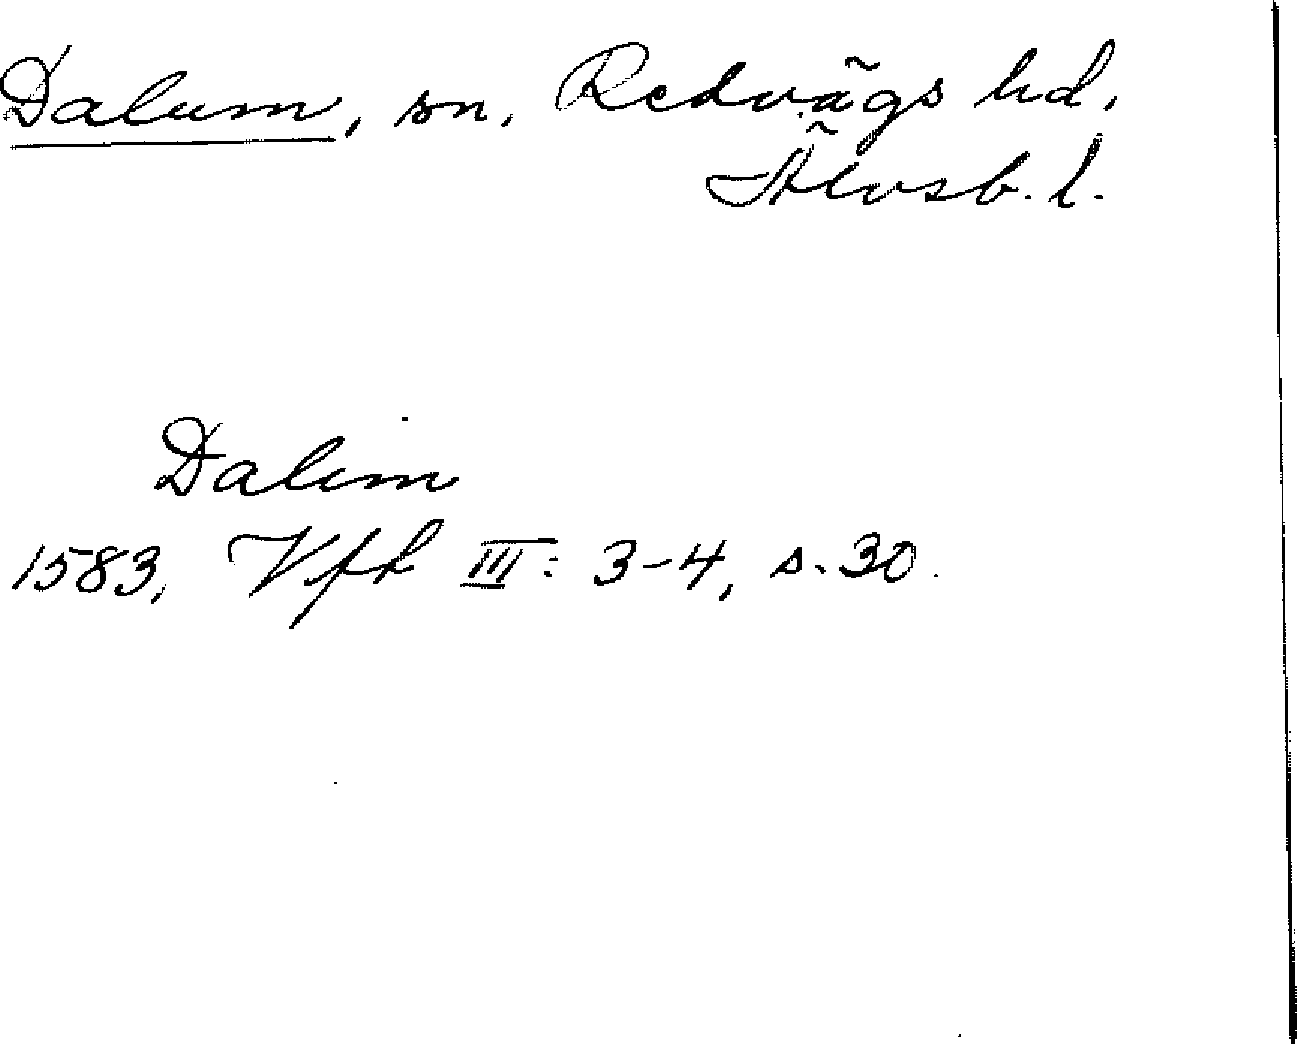 Dalum, sn, Redvägs hd,
Älvsb. l.
Dalim
1583, Vfh III: 3-4, s. 30.